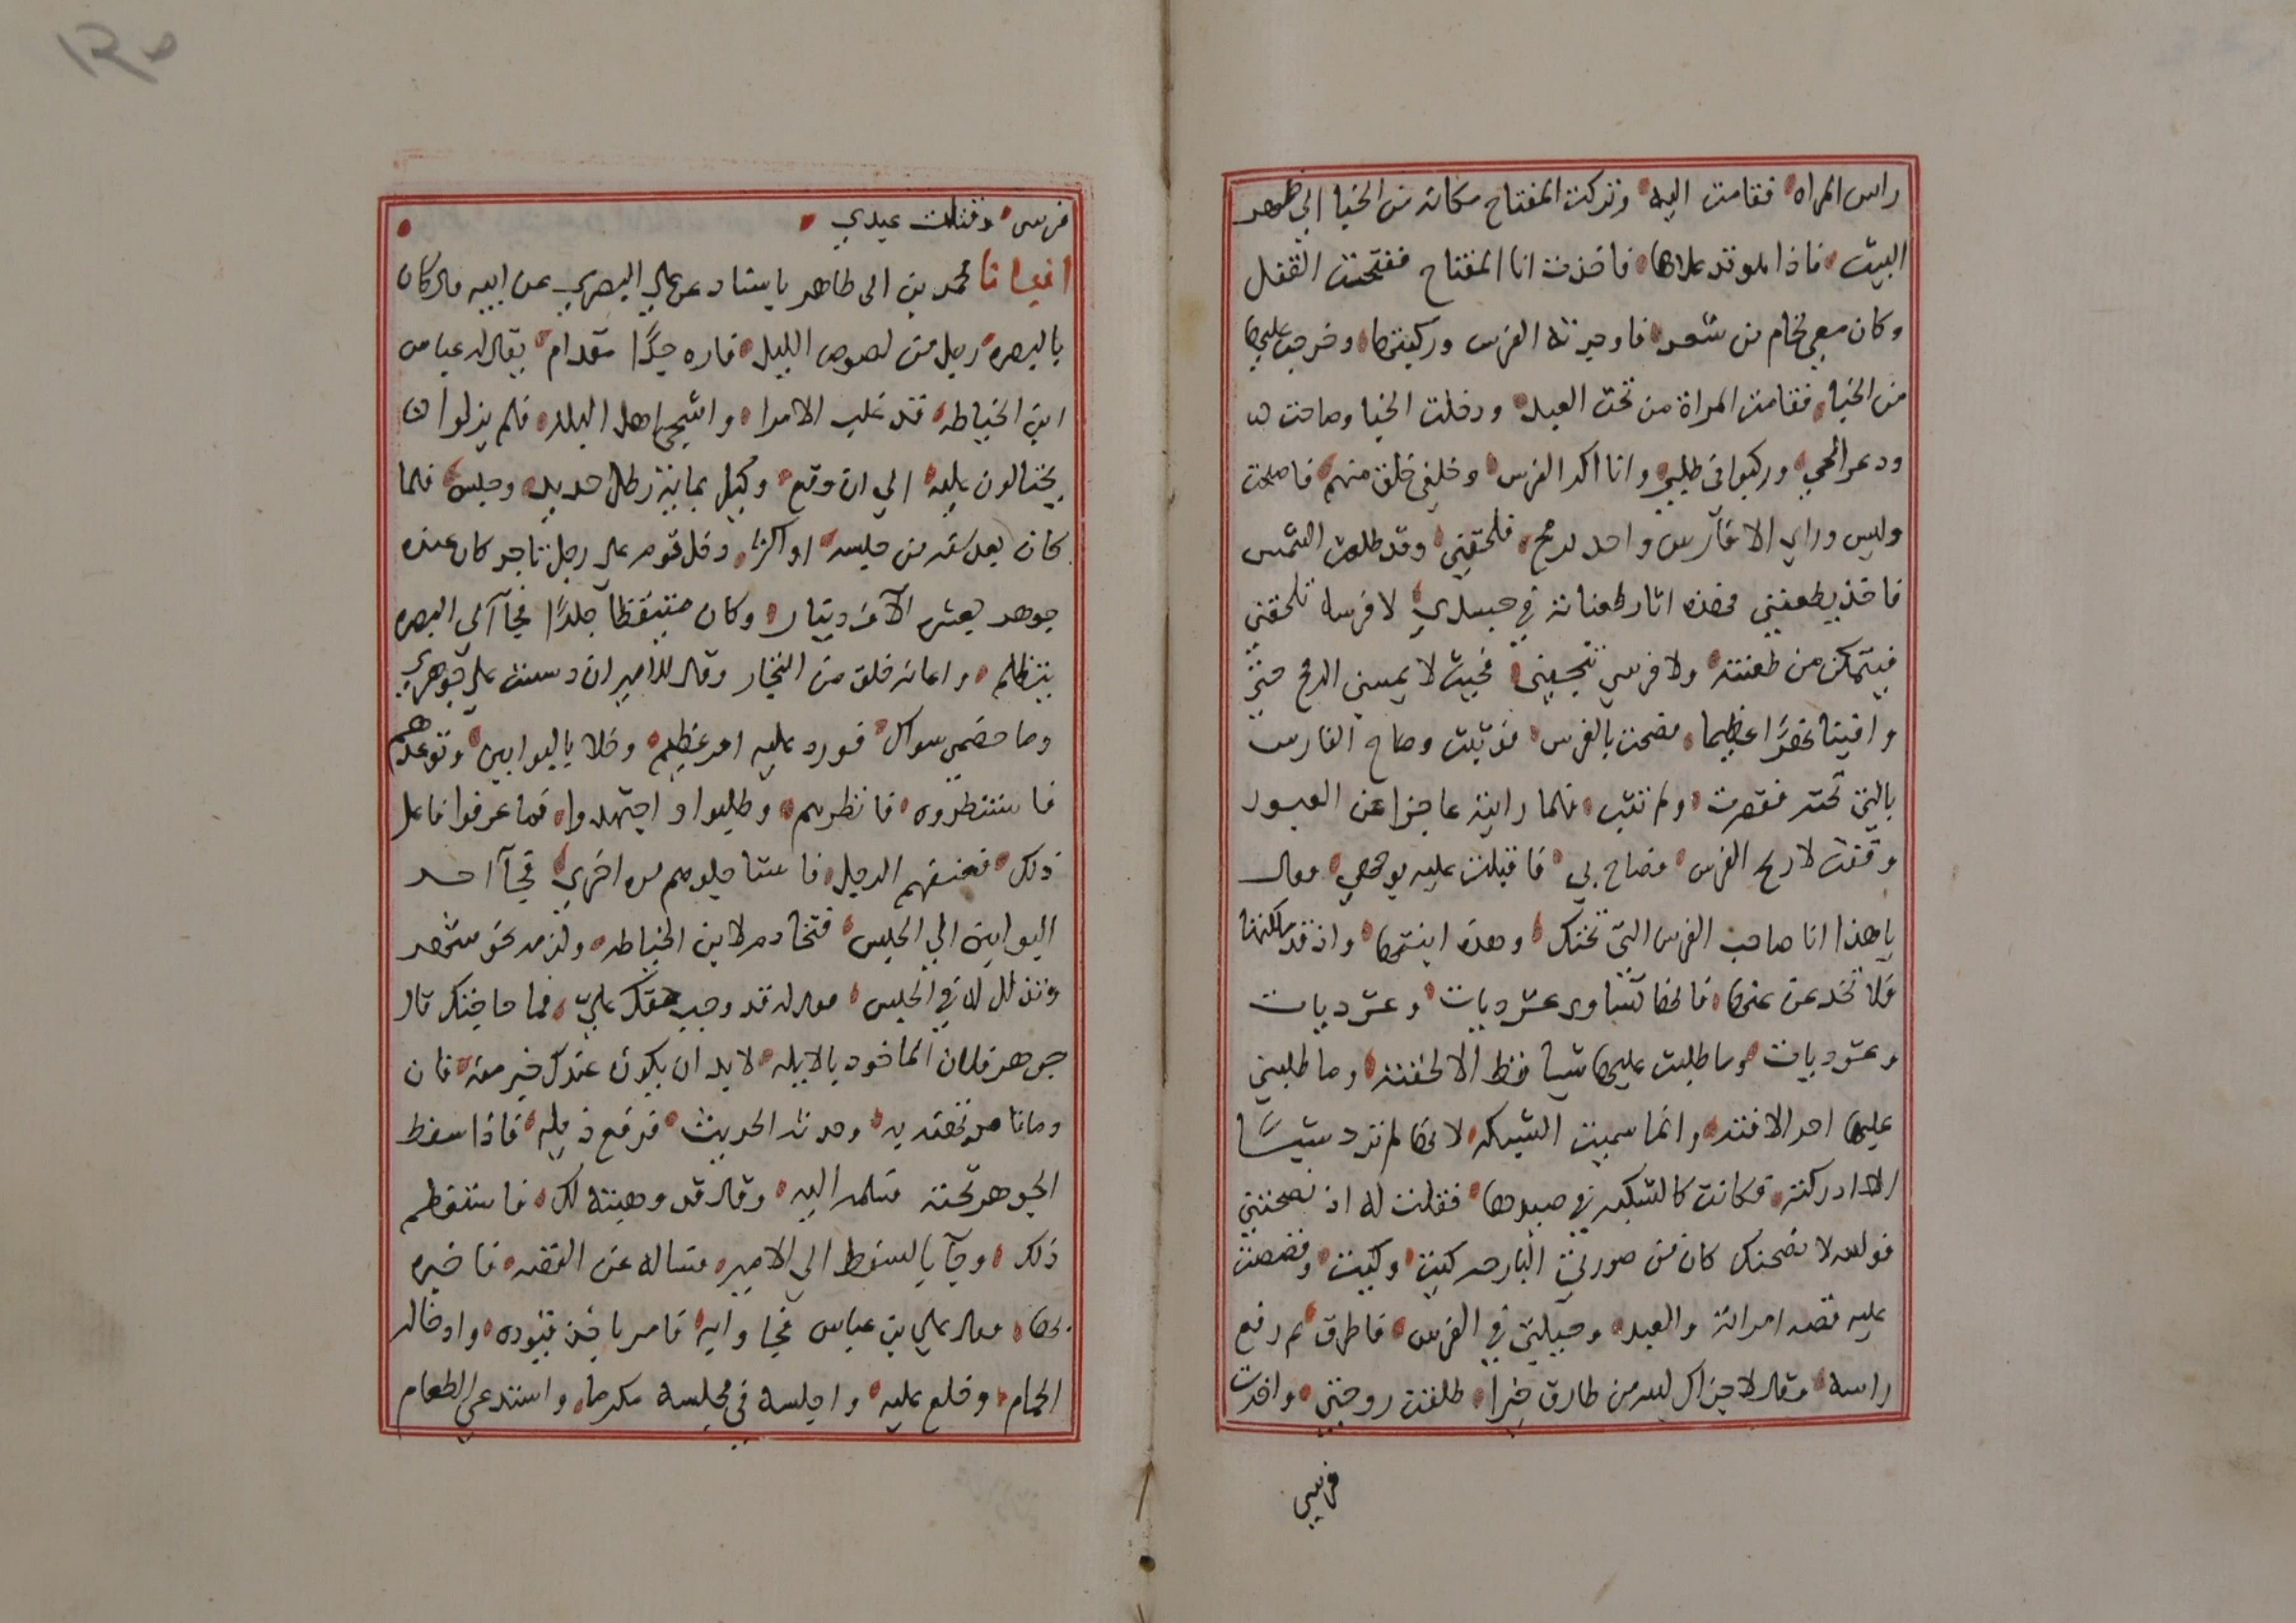 راس المراه فقامت اليه وتركت المفتاح مكانه من الخبا الي ظهر
البيت فاذا هو قد علاها فاخذت انا المفتاح ففتحت القفل
وكان معي لجام من شعر فاوجرته الفرس وركبتها وخرجت عليها
من الخبا فقامت المراة من تحت العبد ودخلت الخبا وصاحت
ودعر الحي وركبوا في طلبي وانا اكد الفرس وخلفي خلق منهم فاصبحت
وليس وراي الا فارس واحد برمح فلحقني وقد طلعت الشمس
فاخذ يطعنني فهذه اثار طعناته في جسدي لا فرسه تلحقني
فيتمكن من طعنته ولا فرسي تنجيني بحيث لا يمسني الرمح حتي
وافينا نهرا عظيما فصحت بالفرس فوثبت وصاح الفارس
بالتي تحته فقصرت ولم تثب فلما رايته عاجزا عن العبور
وقفت لاريح الفرس فصاح بي فاقبلت عليه بوجهي فقال
يا هذا انا صاحب الفرس التي تحتك وهذه ابنتها واذ قد ملكتها
فلا تخدعن عنها فانها تساوي عشر ديات وعشر ديات
وعشر ديات وما طلبت عليها شيا قط الا لحقته وما طلبني
عليها احد الا فته وانما سميت الشبكه لانها لم ترد شيئا
الا ادركته فكانت كالشبكه في صيدها فقلت له اذ نصحتني
فوالله لا نصحنك كان من صورتي البارحه كيت وكيت وقصصت
عليه قصه امراته والعبد وحيلتي في الفرس فاطرق ثم رفع
راسه وقال لا جزاك الله من طارق خيرا طلقت زوجتي واخذت
فرسي
فرسى وقتلت عبدي
انبانا محمد بن ابى طاهر باسناد عن علي البصري عن ابيه قال كان
بالبصره رجل من لصوص الليل فاره جدا مقدام يقال له عباس
ابن الخياطه قد غلب الامرا واشجى اهل البلد فلم يزلوا
يحتالون عليه الي ان وقع وكبل بماية رطل حديد وحبس فلما
كان بعد سنه من حبسه او اكثر دخل قوم على رجل تاجر كان عنده
جوهر بعشره الاف دينار وكان متيقظا جلدا فجآ الى البصره
يتظلم واعانه خلق من التجار وقال للامير ان دسست علي جوهري
وما خصمي سواك فورد عليه امر عظيم وخلا بالبوابين وتوعدهم
فاستنظروه فانظرهم وطلبوا واجتهدوا فما عرفوا فاعل
ذلك فعنفهم الرجل فاستاجلوهم مره اخري فجآ احد
البوابين الي الحبس فتخادم لابن الخياطه ولزمه نحو شهر
وتذلل له في الحبس فقال له قد وجب حقك علي فما حاجتك قال
جوهر فلان الماخوذ بالابله لا بد ان يكون عندك خبر منه فان
دمانا مرتهنه به وحدثه الحديث فرفع ذيله فاذا سفط
الجوهر تحته فسلمه اليه وقال قد وهبته لك فاستعظم
ذلك وجآ بالسفط الي الامير فساله عن القصه فاخبره
بها فقال علي بن عباس فجاوا به فامر باخذ قيوده وادخاله
الحمام وخلع عليه واجلسه في مجلسه مكرما واستدعى الطعام